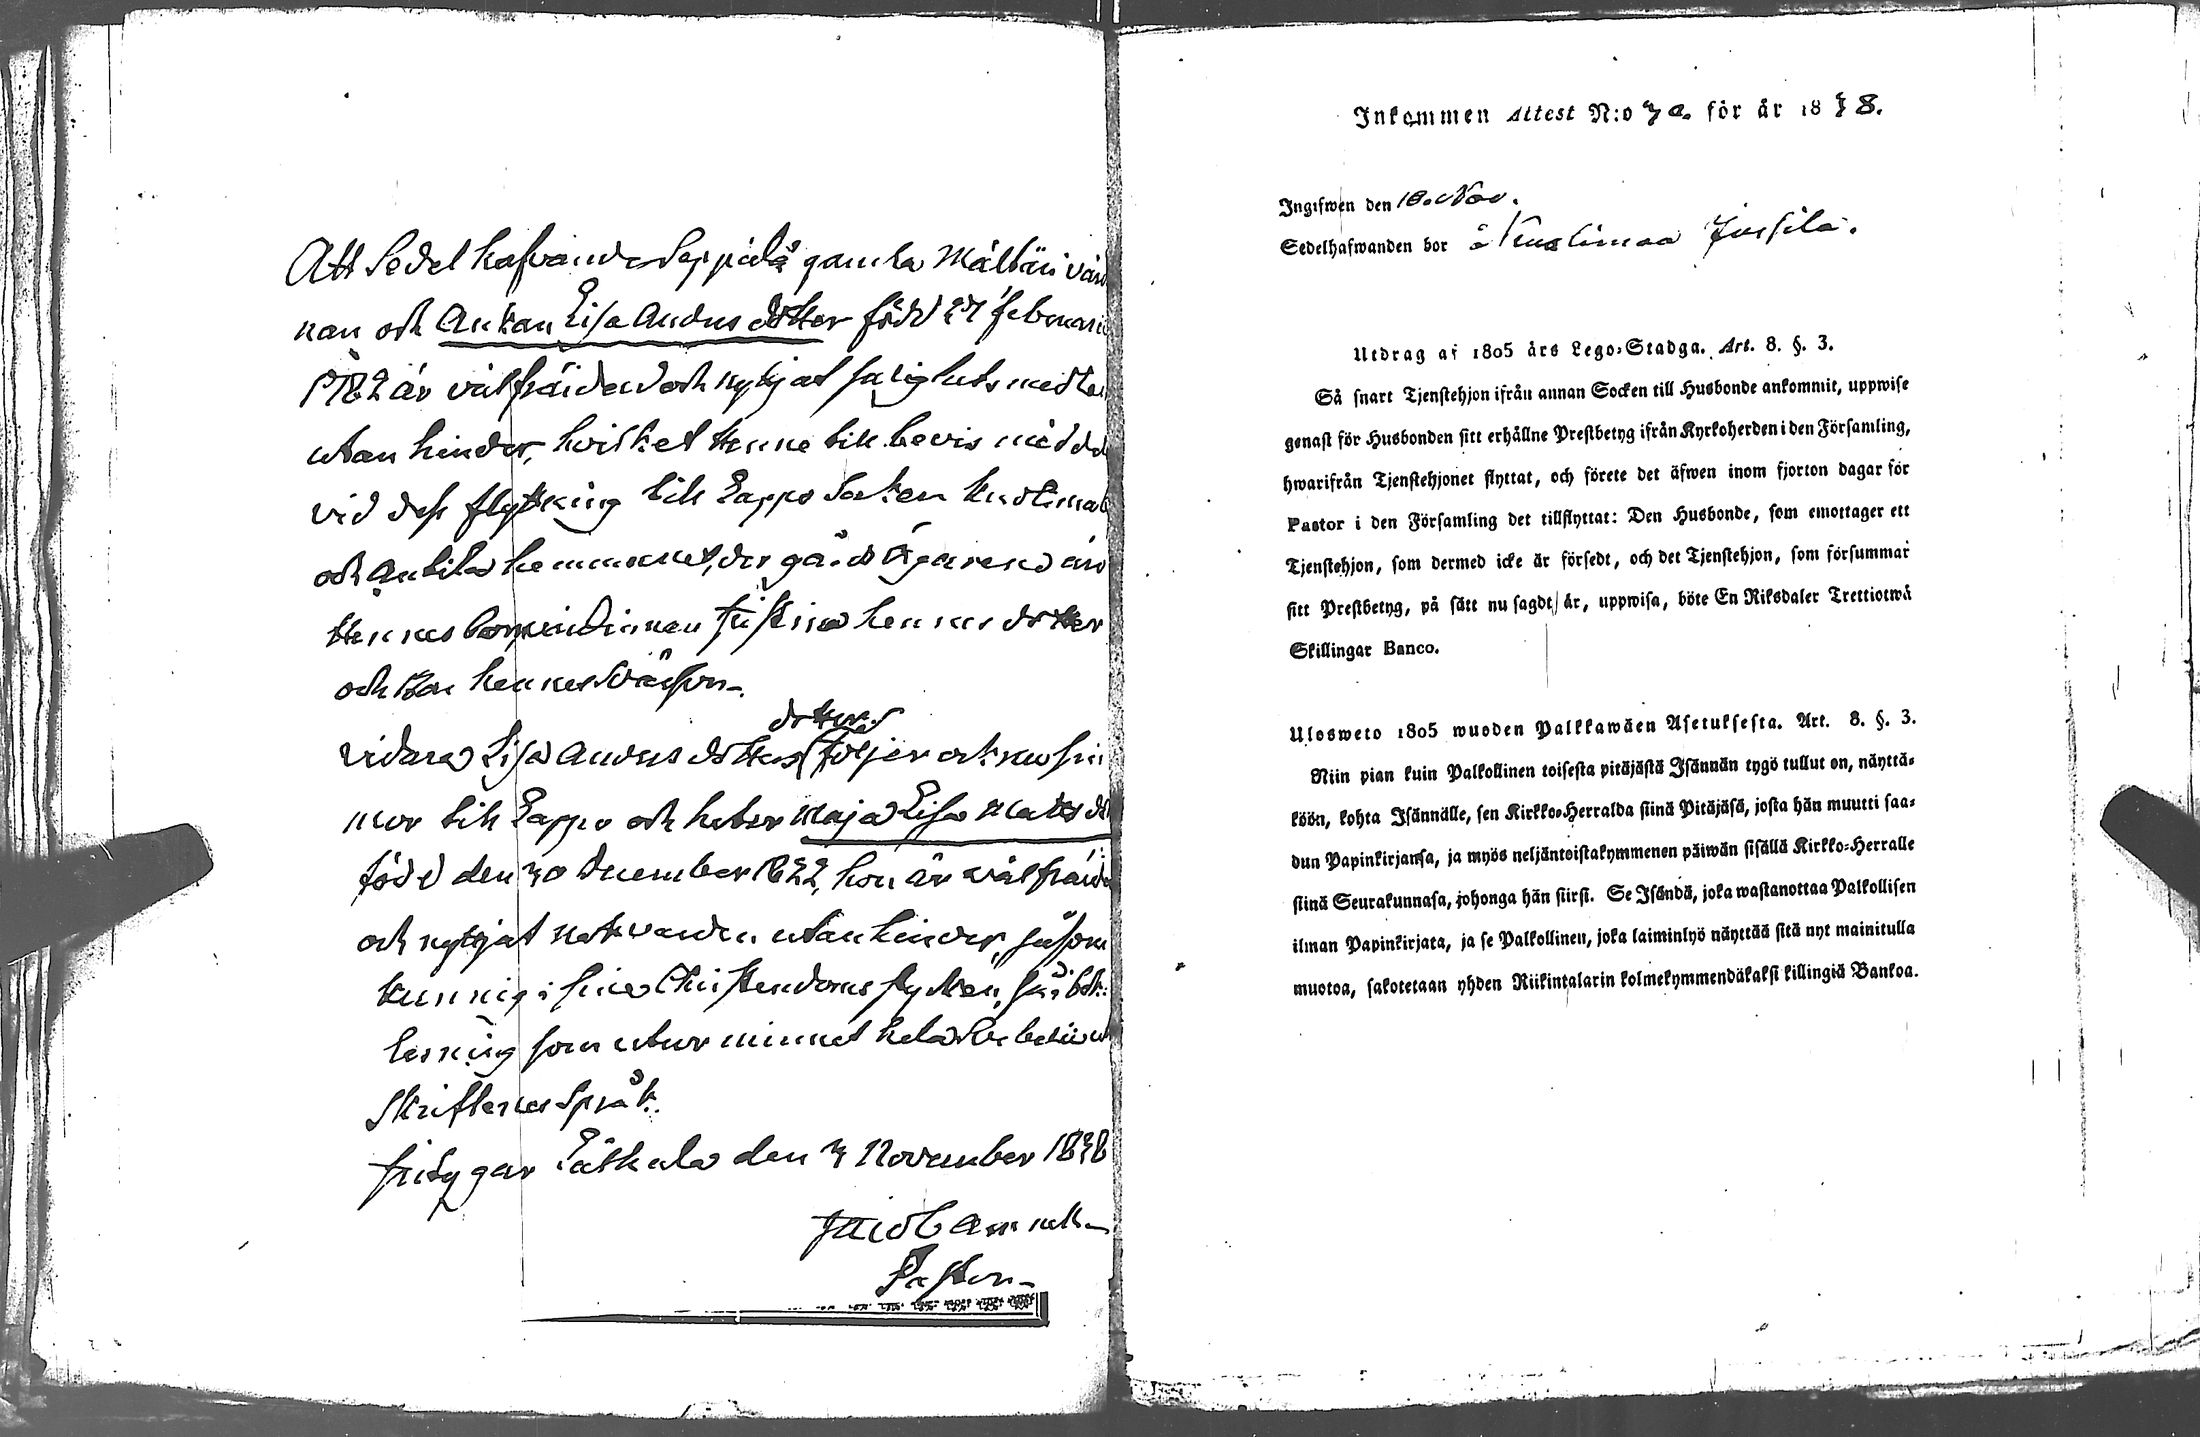 Att Sedel hafvande Seppälä gamla
nan och Enkan Lisa Anders dotter född 27 februarii
1782 är välfräidad och nyttjat salighets medlen
utan hinder, hvilket Henne till bevis medde
vid dess flyttning till Lappo Socken
och Antila hemmanet, der gårds ägarens är
Hennes dotter
och Han hennes Svärson.
dotters
vidare Lisa Anders dotters följer och
mor till Lappo och heter Maja Lisa Matts d
född den 30 December 1822, hon är välfräid
och nyttjat nattvarden utan hinder, såsom
kunnig i sina Christendoms stycken, så i bok:
lesning som utur minnet
Skriftenes Språk.
den 3 November 1838
Pastor
Inkommen Attest N:o 70. för år 1838.
Ingifwen den 18. Nov.
Sedelhafwanden bor å Kuoslimaa Jussila.
Utdrag af 1805 års Lego-Stadga. Art. 8. §. 3.
Så snart Tjenstehjon ifrån annan Socken till Husbonde ankommit, uppwise
genast för Husbonden sitt erhållne Prestbetyg ifrån Kyrkoherden i den Församling,
hwarifrån Tjenstehjonet flyttat, och förete det äfwen inom fjorton dagar för
Pastor i den Församling det tillflyttat: Den Husbonde, som emottager ett
Tjenstehjon, som dermed icke är försedt, och det Tjenstehjon, som försummar
sitt Prestbetyg, på sätt nu sagdt är, uppwisa, böte En Riksdaler Trettiotwå
Skillingar Banco.
Ulosweto 1805 wuoden Palkkawäen Asetuksesta. Art. 8. §. 3.
Niin pian kuin Palkollinen toisesta pitäjästä Isännän tygö tullut on, näyttä-
köön, kohta Isännälle, sen Kirkko-Herralda siinä Pitäjäsä, josta hän muutti saa-
dun Papinkirjansa, ja myös neljäntoistakymmenen päiwän sisällä Kirkko-Herralle
siinä Seurakunnasa, johonga hän siirsi. Se Isändä, joka wastanottaa Palkollisen
ilman Papinkirjata, ja se Palkollinen, joka laiminlyö näyttää sitä nyt mainitulla
muotoa, sakotetaan yhden Riikintalarin kolmekymmendäkaksi killingiä Bankoa.